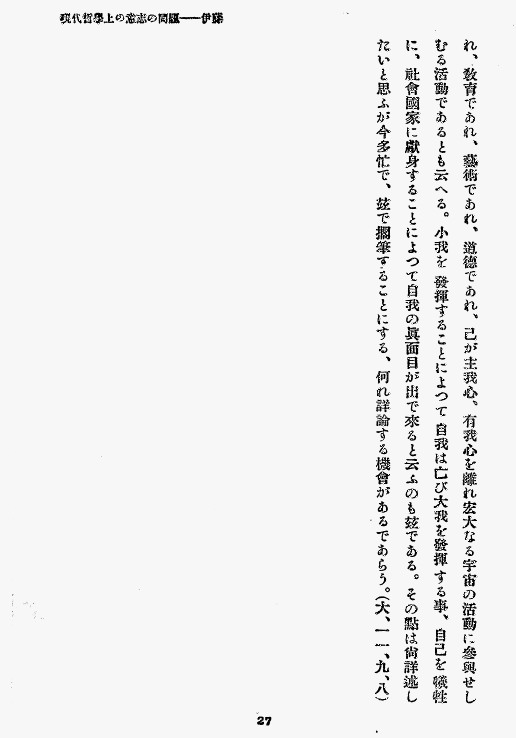 現代哲學上の意志の問題——伊藤
れ、敎育であれ、藝術であれ、道德であれ、己が主我心、有我心を離れ宏大なる宇宙の活動に參與せし
むる活動であるとも云へる。小我を發揮することによつて自我は亡び大我を發揮する事、自己を犧牲
に、社會國家に獻身することによつて自我の眞面目が出で來ると云ふのも玆である。その點は尙詳述し
たいと思ふが今多忙で、玆で擱筆することにする、何れ詳論する機會があるであらう。(大、一一、九、八)
27